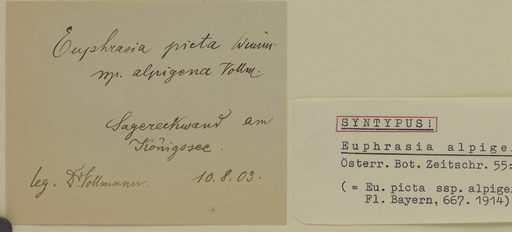 Euphrasia picta Wimm.
ssp. alpigena Vollm.
Sagereckwand am
Königssee.
leg. Dr Vollmann. 10.8.03.
SYNTYPUS!
Euphrasia alpige
Österr. Bot. Zeitschr. 55:
( = Eu. picta ssp. alpige
Fl. Bayern, 667. 1914)